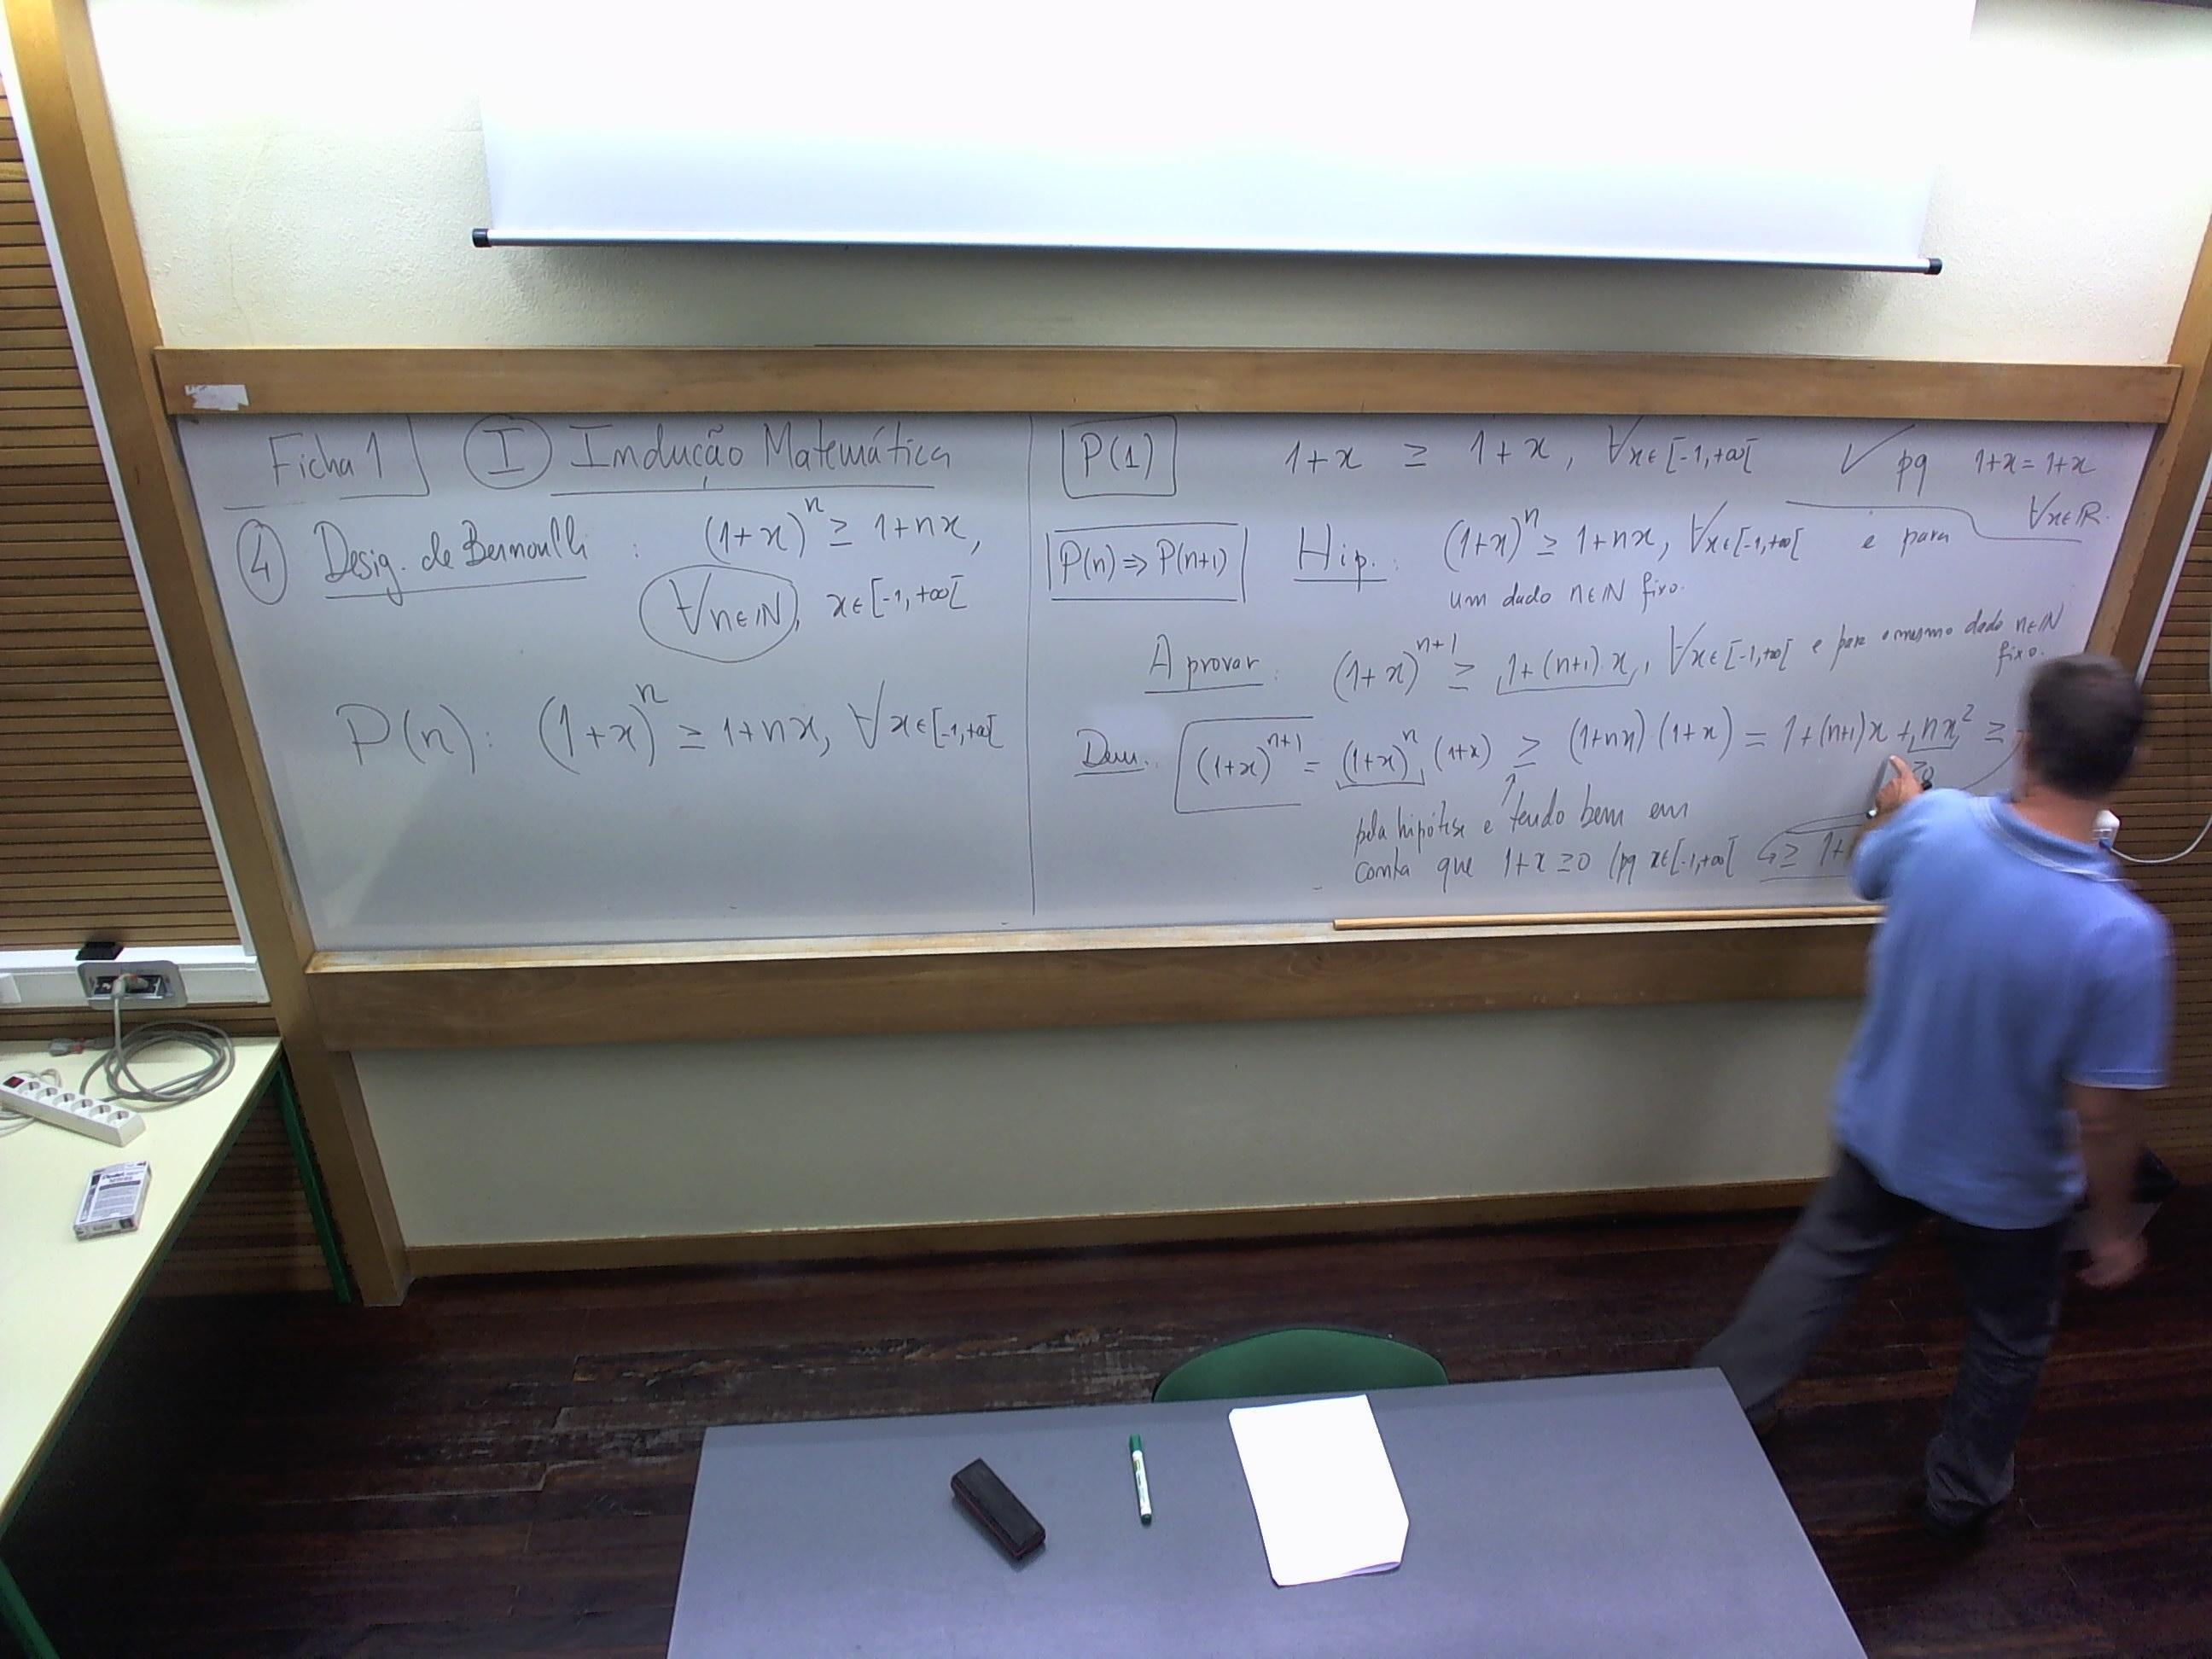 Ficha 1 I Indução Matemática
4 Desig. de Bernoulli : (1+x)^n ≥ 1+nx,
∀n∈ℕ, x∈[-1,+∞[
P(n): (1+x)^n ≥ 1+nx, ∀x∈[-1,+∞[
P(1) 1+x ≥ 1+x, ∀x∈[-1,+∞[ ✓ pq 1+x=1+x
∀x∈ℝ.
P(n) ⇒ P(n+1) Hip.: (1+x)^n ≥ 1+nx, ∀x∈[-1,+∞[ e para
um dado n∈ℕ fixo.
A provar: (1+x)^{n+1} ≥ 1+(n+1)x, ∀x∈[-1,+∞[ e para o mesmo dado n∈ℕ
fixo.
Dem. (1+x)^{n+1} = (1+x)^n (1+x) ≥ (1+nx)(1+x) = 1+(n+1)x + nx² ≥
≥0
↑
pela hipótese e tendo bem em
conta que 1+x ≥ 0 (pq x∈[-1,+∞[ ↪ ≥ 1+